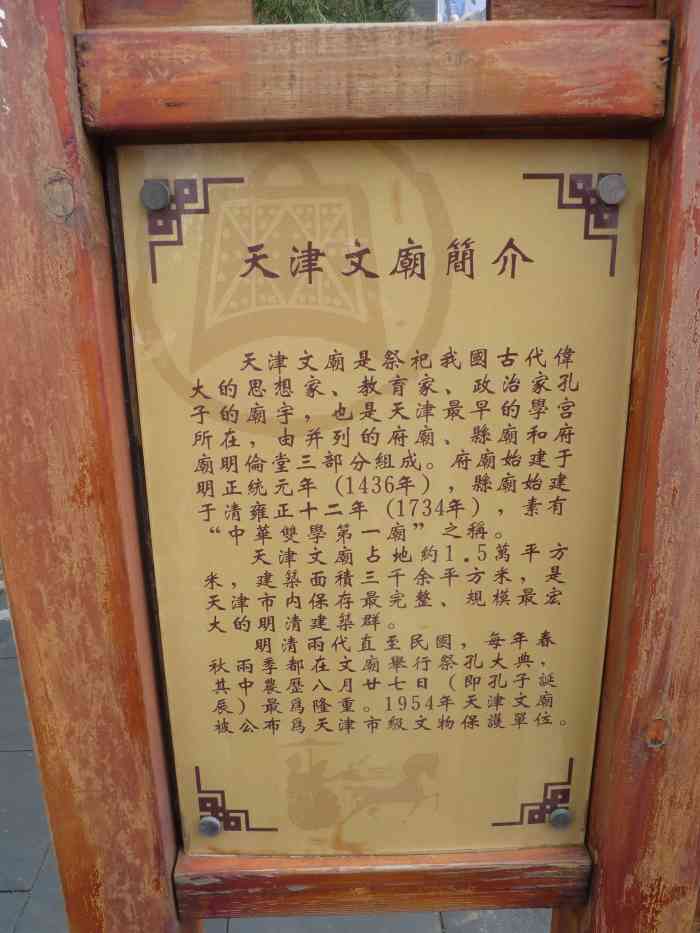 天津文廟簡介
天津文廟是祭祀我國古代偉
大的思想家、教育家、政治家孔
子的廟宇，也是天津最早的學宮
所在，由并列的府廟、縣廟和府
廟明倫堂三部分組成。府廟始建于
明正統元年（1436年），縣廟始建
于清雍正十二年（1734年），素有
“中華雙學第一廟”之稱。
天津文廟占地約1.5萬平方
米，建築面積三千余平方米，是
天津市内保存最完整、規模最宏
大的明清建築群。
明清兩代直至民國，每年春
秋兩季都在文廟舉行祭孔大典，
其中農歷八月廿七日（即孔子誕
辰）最爲隆重。1954年天津文廟
被公布爲天津市級文物保護單位。